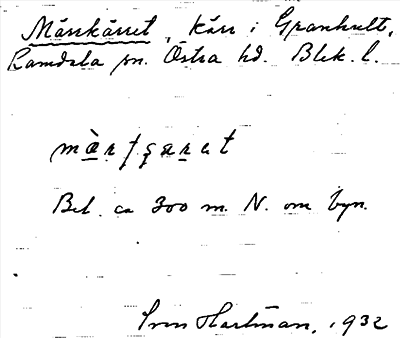 Märrkärret, kärr i Granhult,
Ramdala sn. Östra hd. Blek. l.
Bel. ca 300 m. N. om byn.
Sven Hartman, 1932